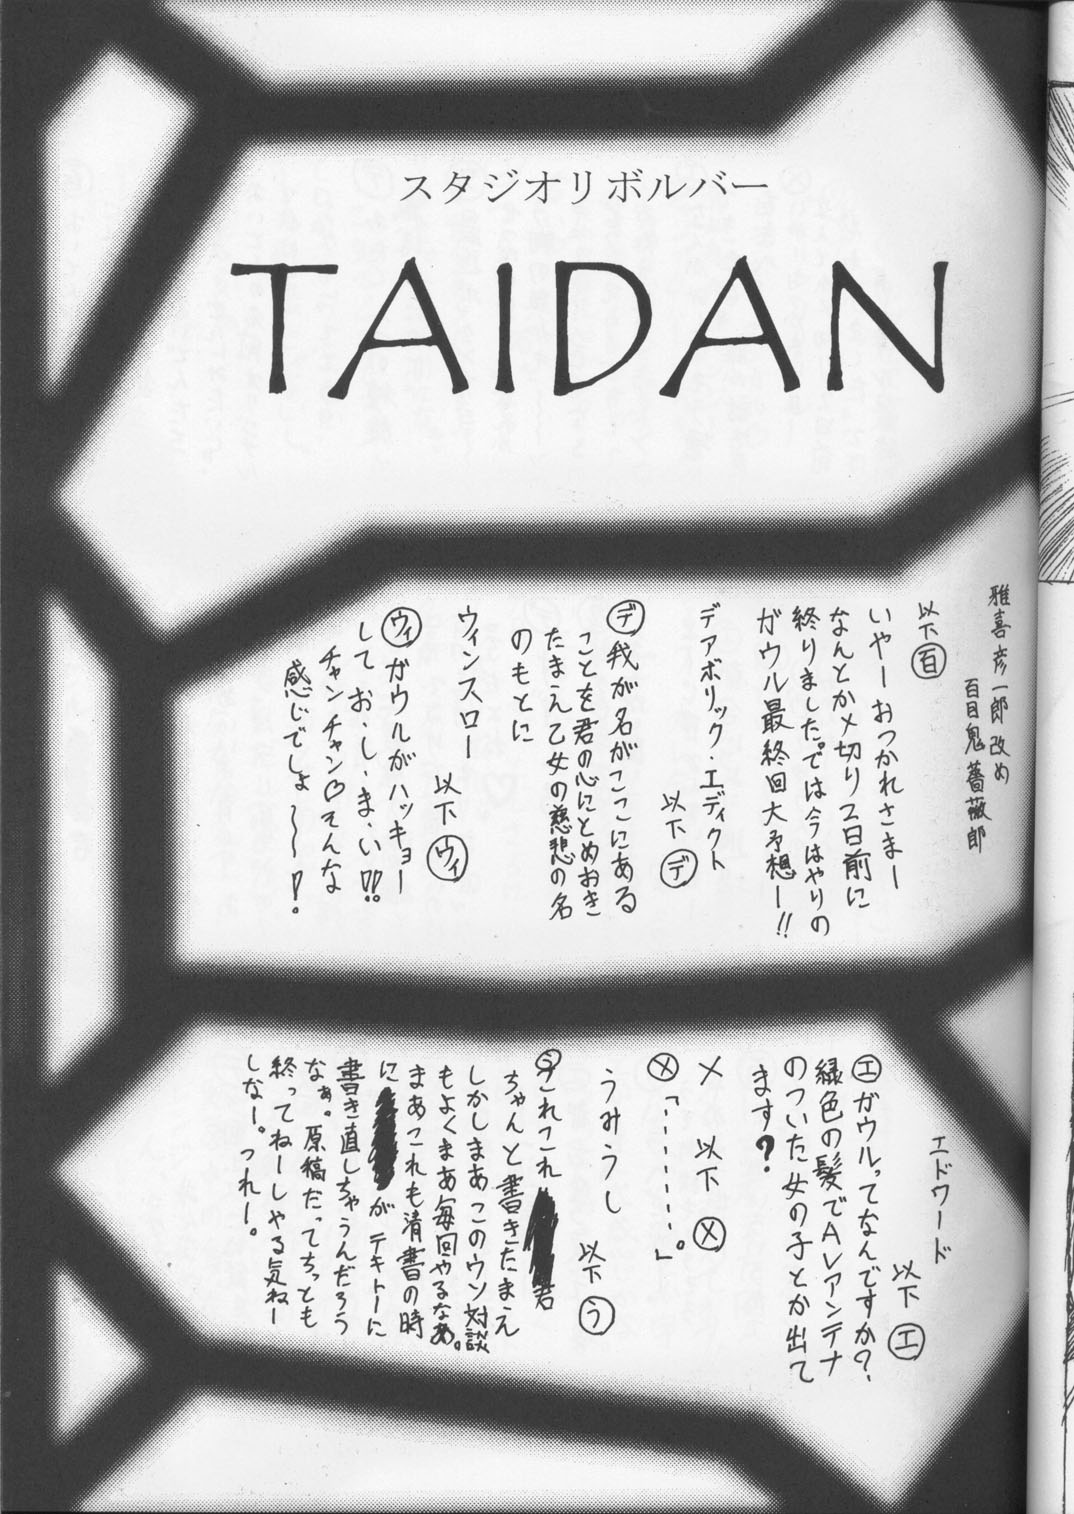 スタジオリボルバー
TAIDAN
雅喜彦一郎改め
百目鬼薔薇郎
以下百
いやーおつかれさまー
なんとか〆切り2日前に
終りました。では今はやりの
ガウル最終回大予想ー!!
デアボリック・エディクト
以下デ
デ我が名がここにある
ことを君の心にとめおき
たまえ乙女の慈悲の名
のもとに
ウィンスロー
以下ウィ
ウィガウルがハッキョー
して お・し・ま・い!!
チャンチャン♡そんな
感じでしょ〜〜!。
エドワード
以下エ
エガウルってなんですか?
緑色の髪でAレアンテナ
のついた女の子とか出て
ます?
メ 以下メ
メ「………」。
うみうし
以下う
うこれこれ 君
ちゃんと書きたまえ
しかしまあこのウソ対談
もよくまあ毎回やるなあ。
まあこれも清書の時
に がテキトーに
書き直しちゃうんだろう
なぁ。原稿だってちっとも
終ってねーしやる気ねー
しなー。つれー。